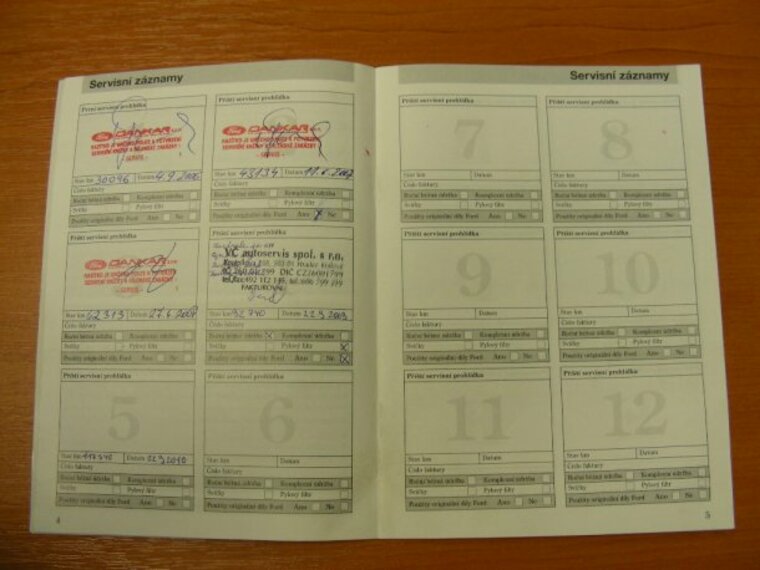 Servisní záznamy
První servisní prohlídka
Ford DANKAR s.r.o.
- SERVIS -
Stav km 30096 Datum 4.9.2006
Číslo faktury
Roční běžná údržba Komplexní údržba
Svíčky Pylový filtr
Použity originální díly Ford Ano Ne
Příští servisní prohlídka
Ford DANKAR
- SERVIS -
Stav km 43134 Datum
Číslo faktury
Roční běžná údržba Komplexní údržba
Svíčky Pylový filtr
Použity originální díly Ford Ano Ne
Příští servisní prohlídka
Ford DANKAR
- SERVIS -
Stav km 62313 Datum
Číslo faktury
Roční běžná údržba Komplexní údržba
Svíčky Pylový filtr
Použity originální díly Ford Ano Ne
Příští servisní prohlídka
VC autoservis spol. s r.o.
FAKTUROVNA
Stav km 92740 Datum 22.9.2009
Číslo faktury
Roční běžná údržba Komplexní údržba
Svíčky Pylový filtr
Použity originální díly Ford Ano Ne
Příští servisní prohlídka
5
Stav km 117540 Datum
Číslo faktury
Roční běžná údržba Komplexní údržba
Svíčky Pylový filtr
Použity originální díly Ford Ano Ne
Příští servisní prohlídka
6
Stav km Datum
Číslo faktury
Roční běžná údržba Komplexní údržba
Svíčky Pylový filtr
Použity originální díly Ford Ano Ne
4
Servisní záznamy
Příští servisní prohlídka
7
Stav km Datum
Číslo faktury
Roční běžná údržba Komplexní údržba
Svíčky Pylový filtr
Použity originální díly Ford Ano Ne
Příští servisní prohlídka
8
Stav km Datum
Číslo faktury
Roční běžná údržba Komplexní údržba
Svíčky Pylový filtr
Použity originální díly Ford Ano Ne
Příští servisní prohlídka
9
Stav km Datum
Číslo faktury
Roční běžná údržba Komplexní údržba
Svíčky Pylový filtr
Použity originální díly Ford Ano Ne
Příští servisní prohlídka
10
Stav km Datum
Číslo faktury
Roční běžná údržba Komplexní údržba
Svíčky Pylový filtr
Použity originální díly Ford Ano Ne
Příští servisní prohlídka
11
Stav km Datum
Číslo faktury
Roční běžná údržba Komplexní údržba
Svíčky Pylový filtr
Použity originální díly Ford Ano Ne
Příští servisní prohlídka
12
Stav km Datum
Číslo faktury
Roční běžná údržba Komplexní údržba
Svíčky Pylový filtr
Použity originální díly Ford Ano Ne
5